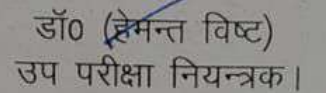 डॉ0 (हेमन्त विष्ट)
उप परीक्षा नियन्त्रक।